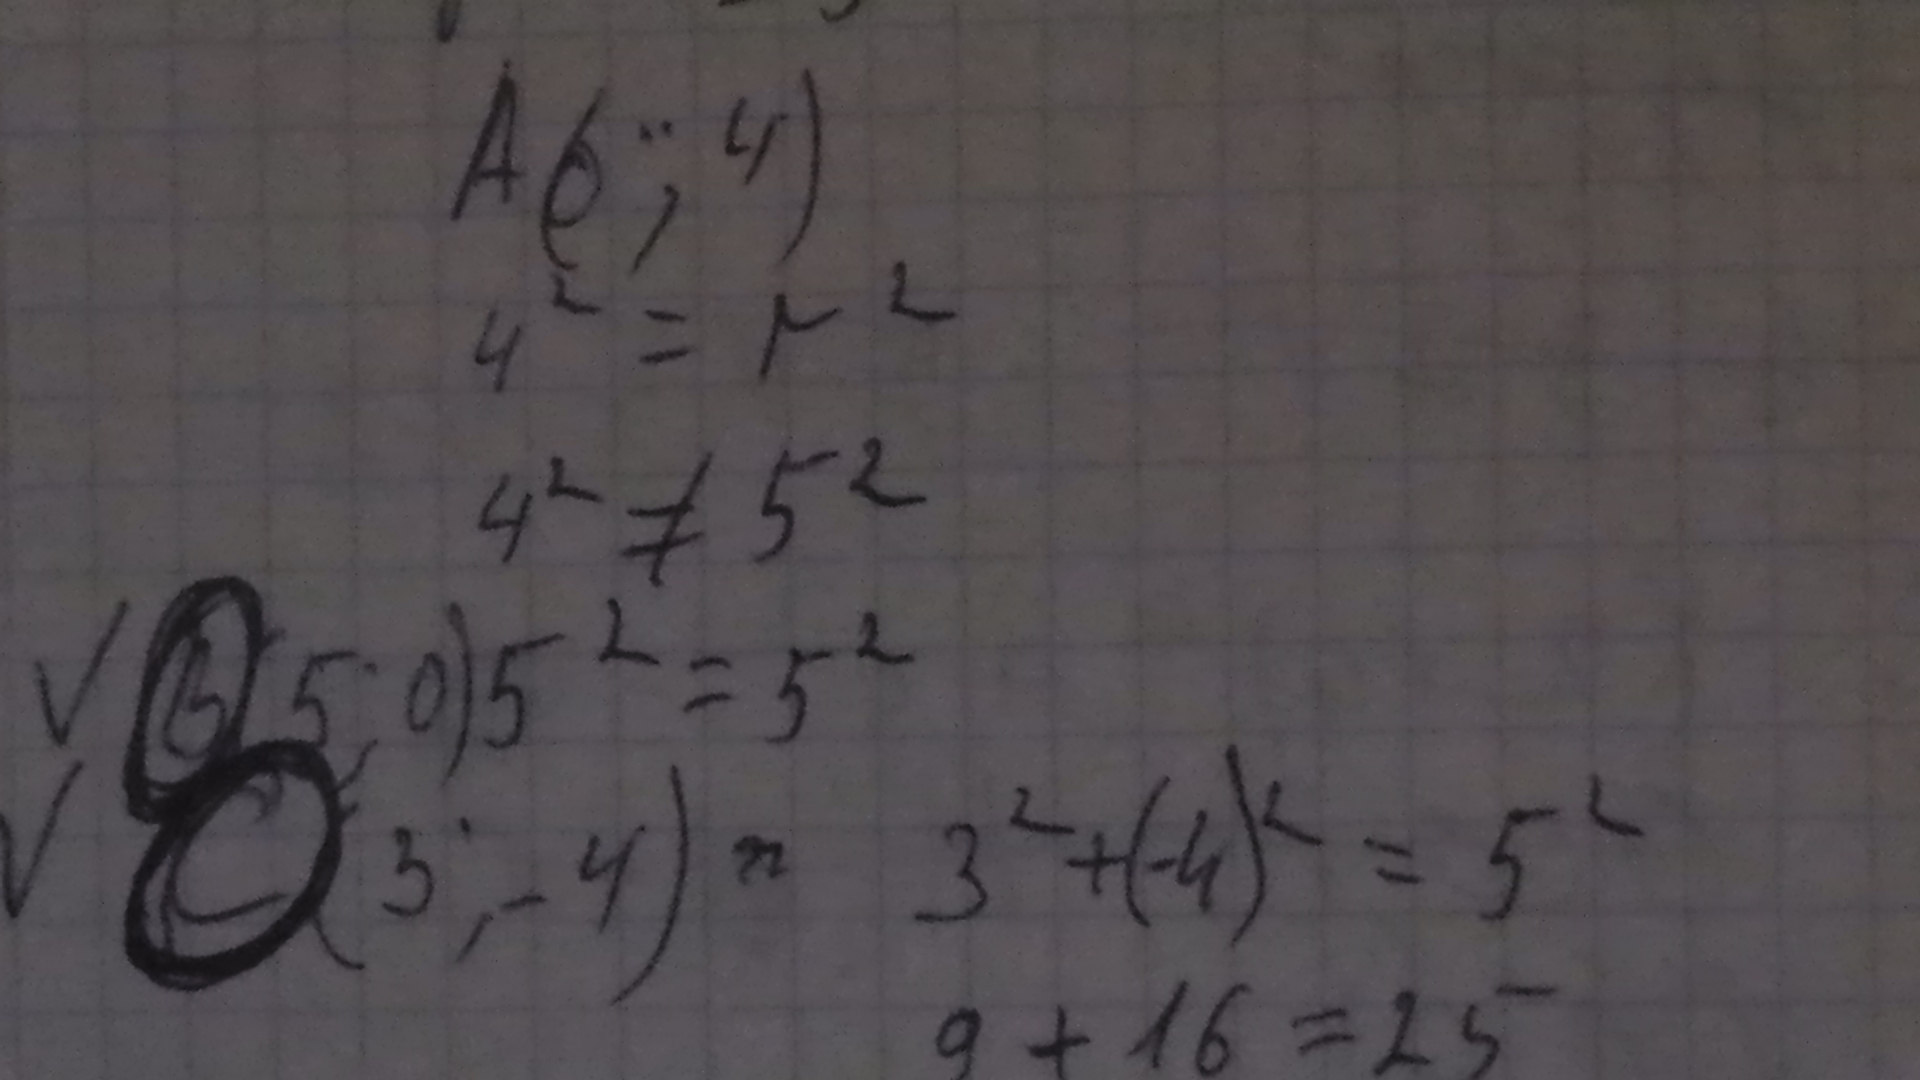 A(0; 4)
4² = r²
4² ≠ 5²
√ B(5; 0) 5² = 5²
√ C(3; -4) 3² + (-4)² = 5²
9 + 16 = 25